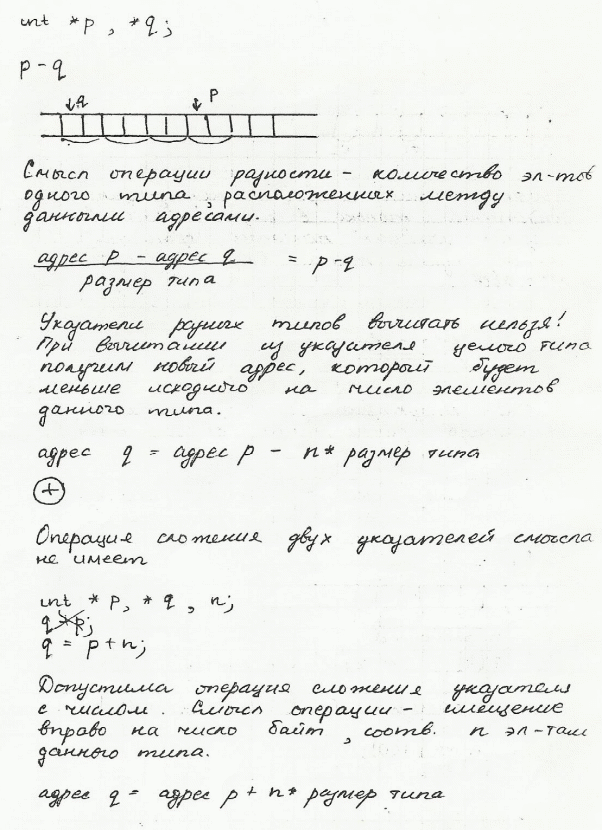 int *p, *q;
p-q
q p
Смысл операции разности - количество эл-тов
одного типа, расположенных между
данными адресами.
адрес p - адрес q
размер типа
= p-q
Указатели разных типов вычитать нельзя!
При вычитании из указателя целого типа
получим новый адрес, который будет
меньше исходного на число элементов
данного типа.
адрес q = адрес p - n* размер типа
+
Операция сложения двух указателей смысла
не имеет
int *p, *q, n;
q = p + n;
Допустима операция сложения указателя
с числом. Смысл операции - смещение
вправо на число байт, соотв. n эл-там
данного типа.
адрес q = адрес p + n* размер типа